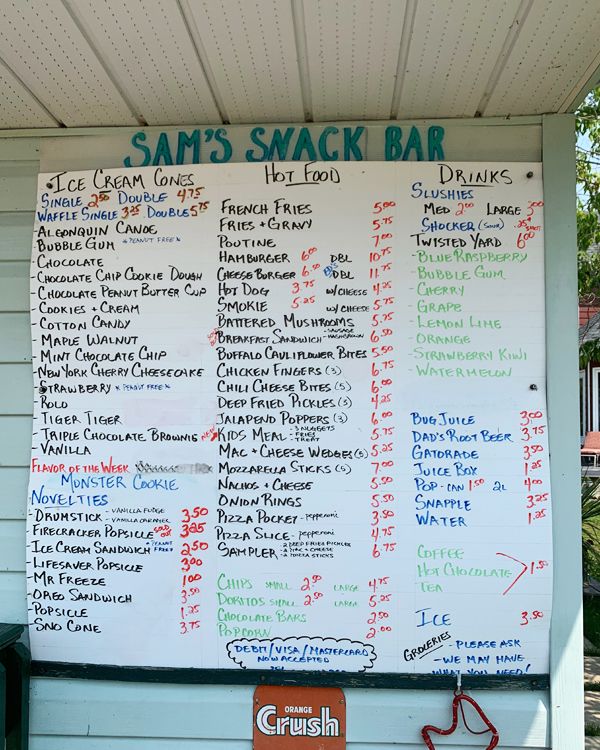 SAM'S SNACK BAR
ICE CREAM CONES
SINGLE 2.50 DOUBLE 4.75
WAFFLE SINGLE 3.25 DOUBLE 5.75
- ALGONQUIN CANOE
- BUBBLE GUM * PEANUT FREE *
- CHOCOLATE
- CHOCOLATE CHIP COOKIE DOUGH
- CHOCOLATE PEANUT BUTTER CUP
- COOKIES + CREAM
- COTTON CANDY
- MAPLE WALNUT
- MINT CHOCOLATE CHIP
- NEW YORK CHERRY CHEESECAKE
- STRAWBERRY * PEANUT FREE *
- ROLO
- TIGER TIGER
- TRIPLE CHOCOLATE BROWNIE NEW
- VANILLA
FLAVOR OF THE WEEK
MONSTER COOKIE
NOVELTIES
- DRUMSTICK - VANILLA FUDGE - VANILLA CARAMEL 3.50
- FIRECRACKER POPSICLE SOLD OUT 3.25
- ICE CREAM SANDWICH * PEANUT FREE * 2.50
- LIFESAVER POPSICLE 3.00
- MR FREEZE 1.00
- OREO SANDWICH 3.50
- POPSICLE 1.25
- SNO CONE 3.75
HOT FOOD
FRENCH FRIES 5.00
FRIES + GRAVY 5.75
POUTINE 7.00
HAMBURGER 6.00 DBL 10.75
CHEESE BURGER 6.50 DBL 11.75
HOT DOG 3.75 W/ CHEESE 4.25
SMOKIE 5.25 W/ CHEESE 5.75
BATTERED MUSHROOMS 5.75
BREAKFAST SANDWICH - SAUSAGE - HASHBROWN 6.50
BUFFALO CAULIFLOWER BITES 5.50
CHICKEN FINGERS (3) 6.75
CHILI CHEESE BITES (5) 6.00
DEEP FRIED PICKLES (3) 4.25
JALAPENO POPPERS (3) 6.00
KIDS MEAL - 3 NUGGETS - FRIES - TREAT 5.75
MAC + CHEESE WEDGES (5) 5.25
MOZZARELLA STICKS (5) 7.00
NACHOS + CHEESE 5.50
ONION RINGS 5.50
PIZZA POCKET - pepperoni 3.50
PIZZA SLICE - pepperoni 4.75
SAMPLER - 2 DEEP FRIED PICKLES - 2 MAC + CHEESE - 2 MOZZA STICKS 6.75
CHIPS SMALL 2.50 LARGE 4.75
DORITOS SMALL 2.50 LARGE 5.25
CHOCOLATE BARS 2.50
POPCORN 2.00
DEBIT/VISA/MASTERCARD
NOW ACCEPTED
DRINKS
SLUSHIES
MED 2.00 LARGE 3.00
SHOCKER (SOUR) .25 SHOT
TWISTED YARD 6.00
- BLUE RASPBERRY
- BUBBLE GUM
- CHERRY
- GRAPE
- LEMON LIME
- ORANGE
- STRAWBERRY KIWI
- WATERMELON
BUG JUICE 3.00
DAD'S ROOT BEER 3.75
GATORADE 3.50
JUICE BOX 1.25
POP - CAN 1.50 2L 4.00
SNAPPLE 3.25
WATER 1.25
COFFEE
HOT CHOCOLATE 1.50
TEA
ICE 3.50
GROCERIES - PLEASE ASK
- WE MAY HAVE
WHAT YOU NEED!
ORANGE
Crush